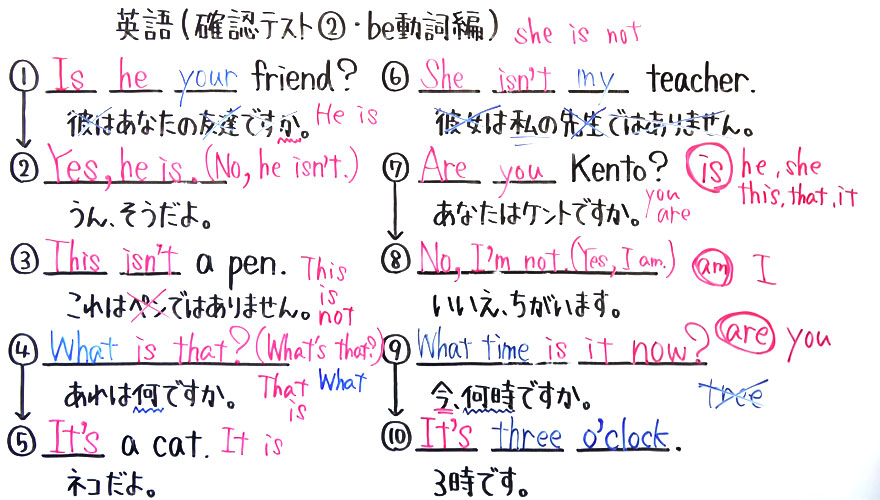 英語(確認テスト②・be動詞編)
she is not
① Is he your friend?
彼はあなたの友達ですか。 He is
② Yes, he is. (No, he isn't.)
うん、そうだよ。
③ This isn't a pen. This is not
これはペンではありません。
④ What is that? (What's that?)
あれは何ですか。 That is What
⑤ It's a cat. It is
ネコだよ。
⑥ She isn't my teacher.
彼女は私の先生ではありません。
⑦ Are you Kento?
あなたはケントですか。 you are
is he, she this, that, it
⑧ No, I'm not. (Yes, I am.)
いいえ、ちがいます。
am I
⑨ What time is it now?
今、何時ですか。
are you
tree
⑩ It's three o'clock.
3時です。